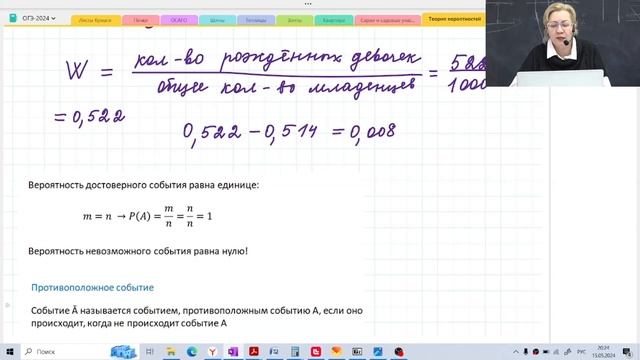 ОГЭ-2024
Листы бумаги
Печки
ОСАГО
Шины
Теплицы
Зонты
Квартира
Теория вероятностей
W = кол-во рождённых девочек / общее кол-во младенцев = 522 / 1000
= 0,522
0,522 – 0,514 = 0,008
Вероятность достоверного события равна единице:
m = n → P(A) = m/n = n/n = 1
Вероятность невозможного события равна нулю!
Противоположное событие
Событие Ā называется событием, противоположным событию А, если оно
происходит, когда не происходит событие А
Поиск
РУС
20:24
15.05.2024